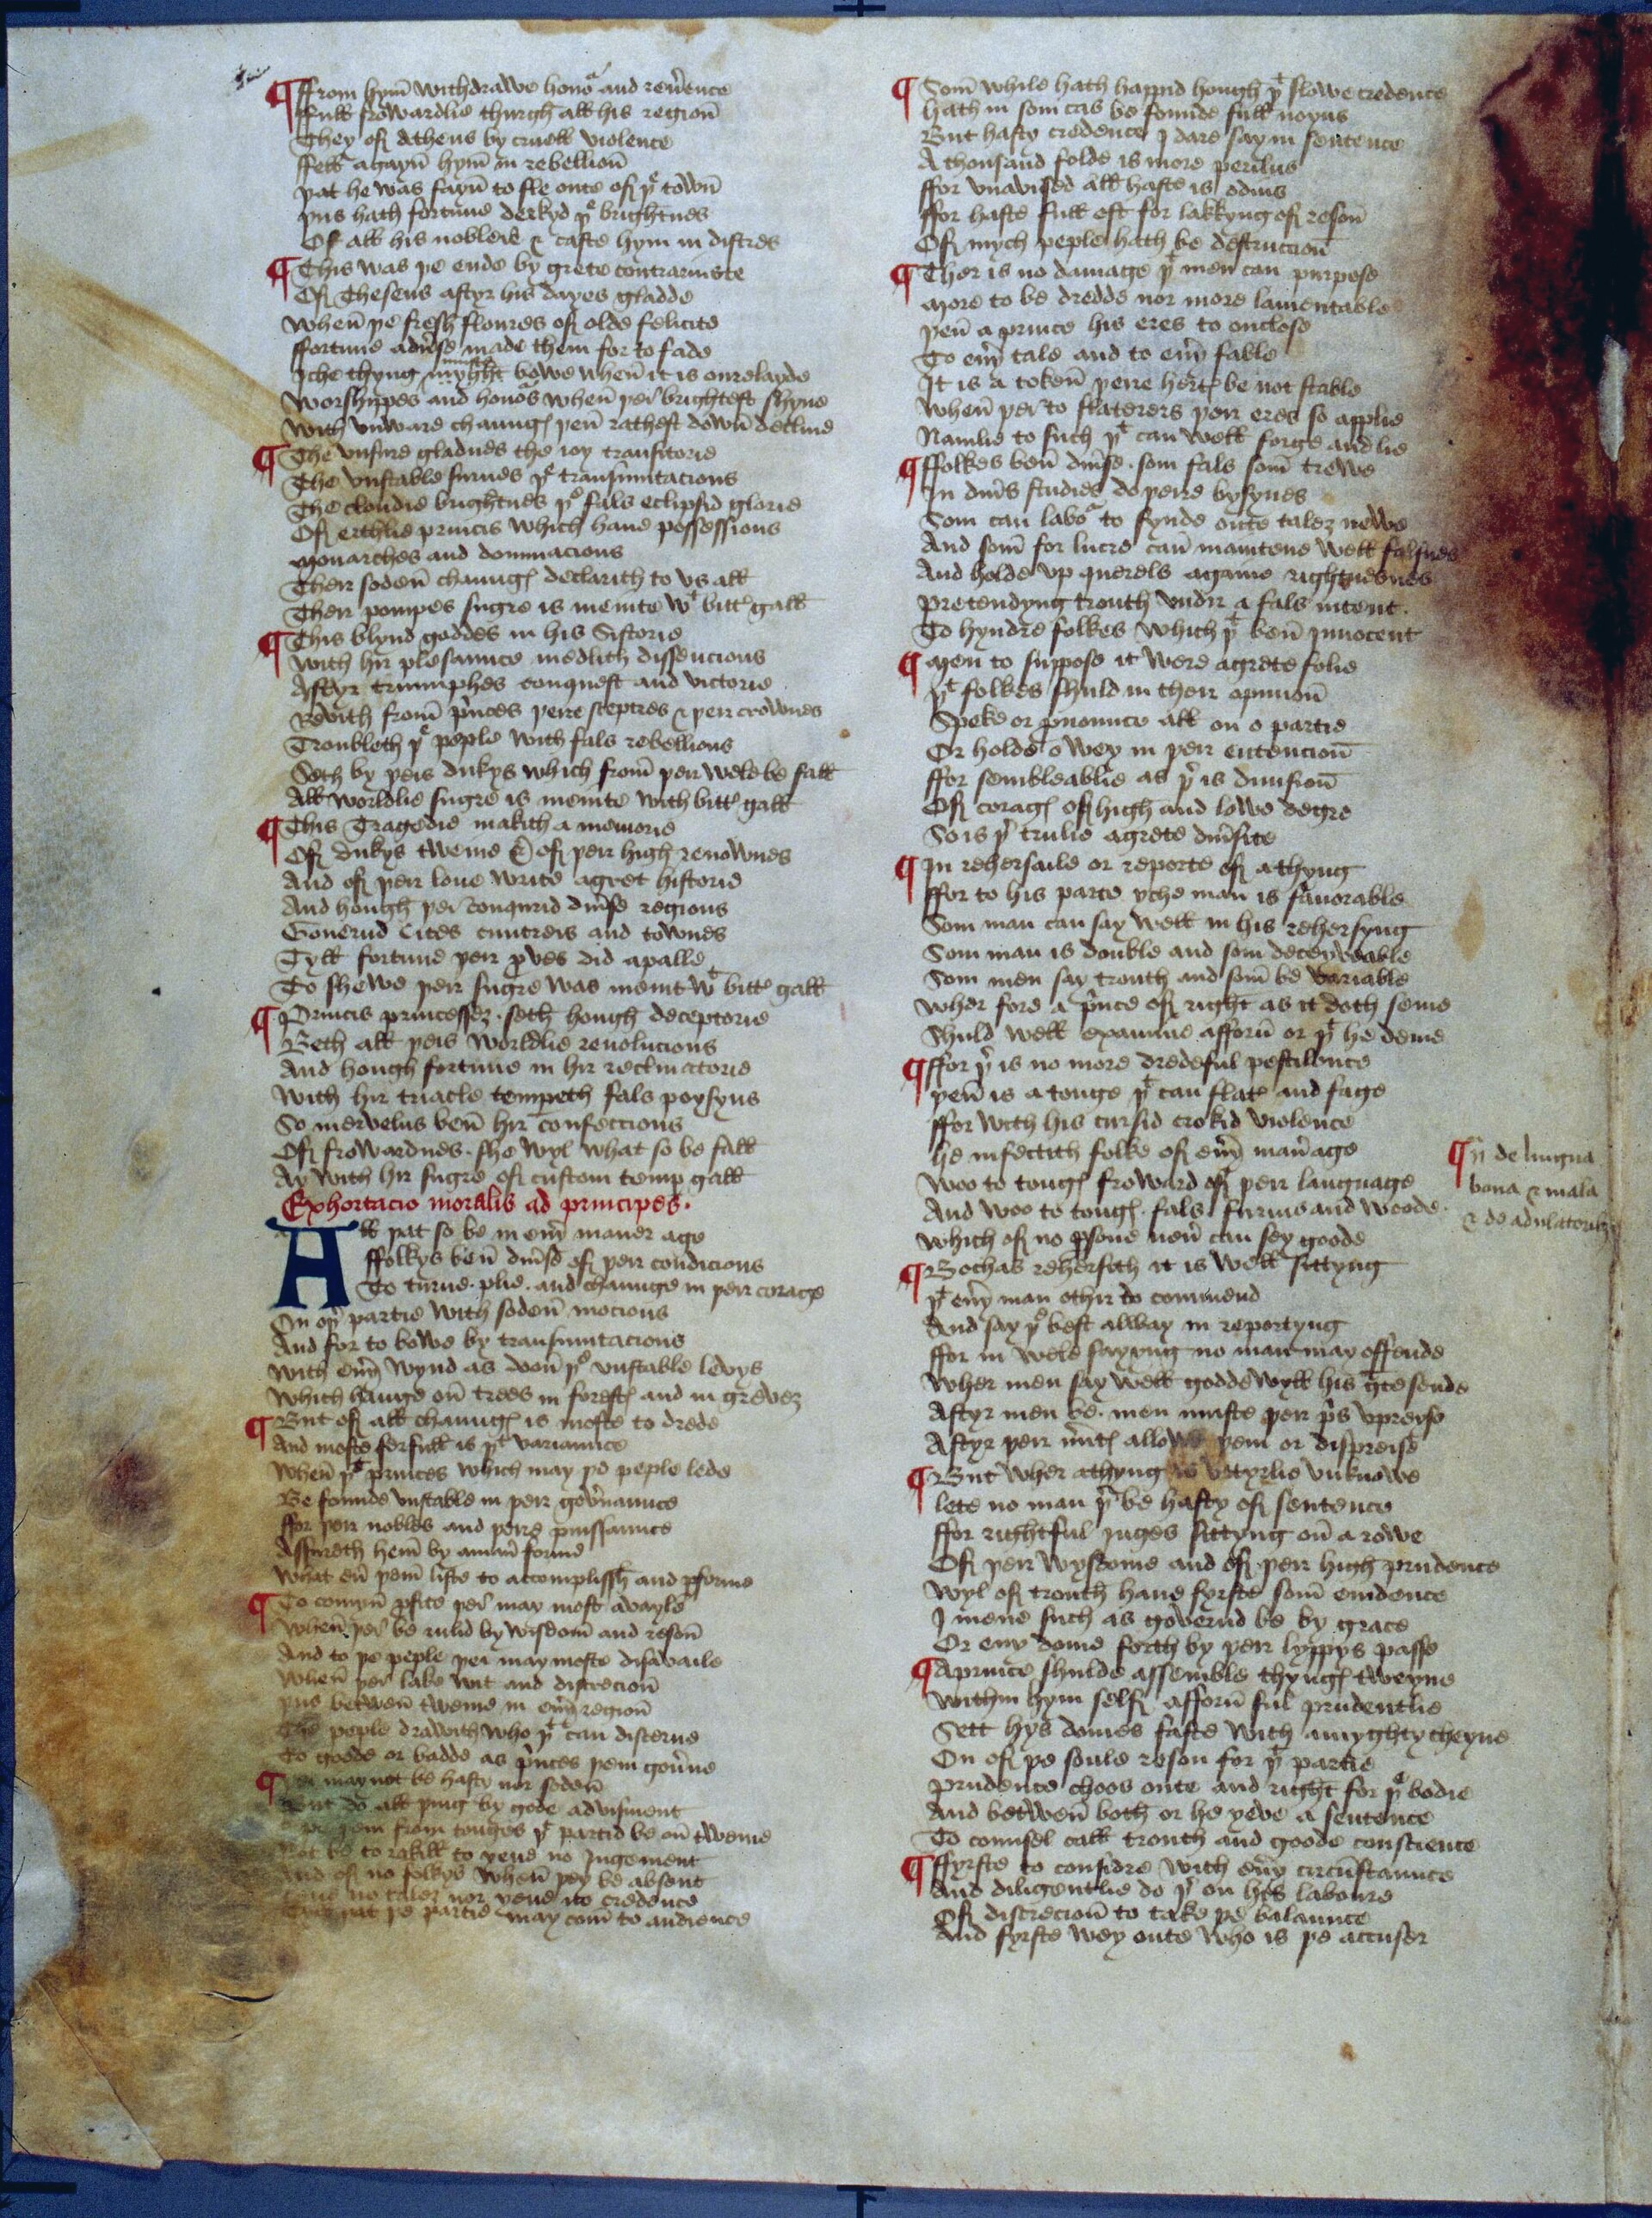 ¶ ffrom hym̄ withdrawe honoᵃ and reu̾ence
ffull frowardlie thurgh all his region̄
They of Athens by cruell violence
ffell agayn̄ hym̄ in rebellion̄
þat he was fayn̄ to fle oute of þᵉ town̄
þus hath fortune derkyd þᵉ brightnes
Of all his noblesse & caste hym in distres
¶ This was þe ende by grete contrariuste
Of Theseus aftyr his dayes gladde
When̄ þe fresh floures of olde felicite
ffortune adu̾se made them for to fade
Iche thyng myght bowe when̄ it is ourelayde
Worshipes and honoᵃs when̄ þei brightest shyne
With vnware chaungꝭ þen̄ rathest down̄ decline
¶ The vnsure gladnes the ioy transitorie
The vnstable surnes þᵉ transmutacions
The cloudie brightnes þᵉ fals eclipsid glorie
Of erthlie princis which haue possessions
Monarches and dominacions
Their soden̄ chaungꝭ declarith to vs all
Their pompes sugre is meinte wᵗ bitt̾ gall
¶ This blynd goddes in his Sistorie
With hir plesaunce medlith dissencions
Aftyr triumphes conquest and victorie
Revith from̄ p̾nces þeire sceptres & þeir crownes
Troubleth þᵉ peple with fals rebellions
Seth by þeis dukys which from̄ þeir wele be fall
All worldlie sugre is meinte with bitt̾ gall
¶ This Tragedie makith a memorie
Of dukys tweine & of þeir high renownes
And of þeir loue write agret historie
And hough þei conqurid diu̾se regions
Gouernd Cites cuntreis and townes
Tyll fortune þeir p̄wes did apalle
To shewe þeir sugre was meint wᵗ bitt̾ gall
¶ Princis princessez · seth hough deceptorie
Beth all þeis worldlie reuolucions
And hough fortune in hir reclinatorie
With hir triacle tempeth fals poysyns
So mervelus ben̄ hir confeccions
Of frowardnes · she wyl what so be fall
Ay with hir sugre of custom temp gall
Exhortacio moralis ad principes ·
All þat so be in eu̾y maner age
ffolkys ben̄ diu̾se of þeir condicions
To turne · plie · and chaunge in þeir corage
On oþ̾ partie with soden̄ mocions
And for to bowe by transmutacions
With eu̾y wynd as doon̄ þᵉ vnstable levys
Which hange on̄ trees in forestꝭ and in grevez
¶ But of all chaungꝭ is moste to drede
And moste ferfull is þᵗ variaunce
When̄ þᵗ princes which may þe peple lede
Be founde vnstable in þeir gov̾naunce
ffor þeir nobles and þeire puissaunce
Assureth hem̄ by aman̄ fourme
What eu̾ þem̄ liste to accomplissh and p̱forme
¶ To comyn̄ p̱fite þei may most avayle
When̄ þei be rulid by wisdom̄ and reson̄
And to þe peple þei may moste disavaile
When̄ þei lake wit and discrecion̄
þus betwen̄ tweine in eu̾y region̄
The peple drawith who þᵗ can discerne
To goode or badde as p̾nces þem gou̾ne
¶ þei may not be hasty nor soden̄
But do all þing by gode advisment
from tonges þᵗ partid be on̄ tweine
Not be to rakill to yeue no Jugement
And of no folkys when̄ þey be absent
no talez nor yeue no credence
þat þe partie may com̄ to audience
¶ Som̄ while hath happid hough þᵗ slowe credence
Hath in som cas be founde full noyus
But hasty credence J dare say in sentence
A thousand folde is more perilus
ffor vnavised all haste is odius
ffor haste full oft for lakkyng of reson̄
Of mych peple hath be destruccion̄
¶ Ther is no damage þᵗ men can purpose
More to be dredde nor more lamentable
þen̄ a prince his eres to onclose
To eu̾y tale and to eu̾y fable
It is a token̄ þeire hertꝭ be not stable
When̄ þei to flaterers þeir eres so applie
Namlie to such þᵗ can well forge and lie
¶ ffolkes ben̄ diu̾se · som fals som̄ trewe
In diu̾s studies do þeire bysynes
Som can laboᵃ to fynde oute talez newe
And som̄ for lucre can̄ mainteine well falsnes
And holde vp querels againe rightuesnes
Pretendyng trouth vndir a fals intent ·
To hyndre folkes which þᵗ ben̄ jnnocent
¶ Men to suppose it were agrete folie
þᵗ folkes shuld in their opinion̄
Speke or p̱nounce all on o partie
Or holde o wey in þeir entencion̄
ffor sembleablie as þ̾ is diuision̄
Of coragꝭ of high and lowe degre
So is þ̾ trulie agrete diu̾site
¶ In rehersaile or reporte of athyng
ffor to his parte yche man is fauorable
Som man can say well in his rehersyng
Som man is double and som deceyveable
Som men say trouth and som̄ be variable
Wher fore a p̾nce of right as it doth seme
Shuld well examine afforn̄ or þᵗ he deme
¶ ffor þ̾ is no more dredeful pestilence
þen̄ is a tonge þᵗ can flat̾ and fage
ffor with his cursid crokid violence
he infectith folke of eu̾y man̄ age
Woo to tongꝭ froward of þeir language
And woo to tongꝭ · fals furius and woode ·
Which of no p̱sone neu̾ can sey goode
¶ Bochas rehersith it is well sittyng
þᵗ eu̾y man othir do commend
And say þᵉ best alway in reportyng
ffor in wele sayyng no man may offende
Wher men say well godde wyll his g̾ce sende
Aftyr men be · men muste þeir p̾s vpreyse
Aftyr þeir m̾itꝭ allowe þem or dispreise
¶ But wher athyng is vttyrlie vnknowe
lete no man þ̾ be hasty of sentence
ffor rightful Juges sittyng on̄ a rowe
Of þeir wysdome and of þeir high prudence
Wyl of trouth haue fyrste som̄ euidence
J mene such as governd be by grace
Or eny dome forth by þeir lyppys passe
¶ Aprince shulde assemble thyngꝭ tweyne
Within hym self afforn̄ ful prudentlie
Sett hys domes faste with amyghty cheyne
On of þe soule reson for þᵗ partie
Prudence choos oute and right for þᵉ bodie
And betwen̄ both or he yeve a sentence
To counsel call trouth and goode conscience
¶ ffyrste to considre with eu̾y circūstaunce
And diligentlie do þ̾ on his laboure
Of discrecion̄ to take þe balaunce
And fyrste wey oute who is þe accuser
¶ n̄ de lingua
bona & mala
& de adulatoribꝫ